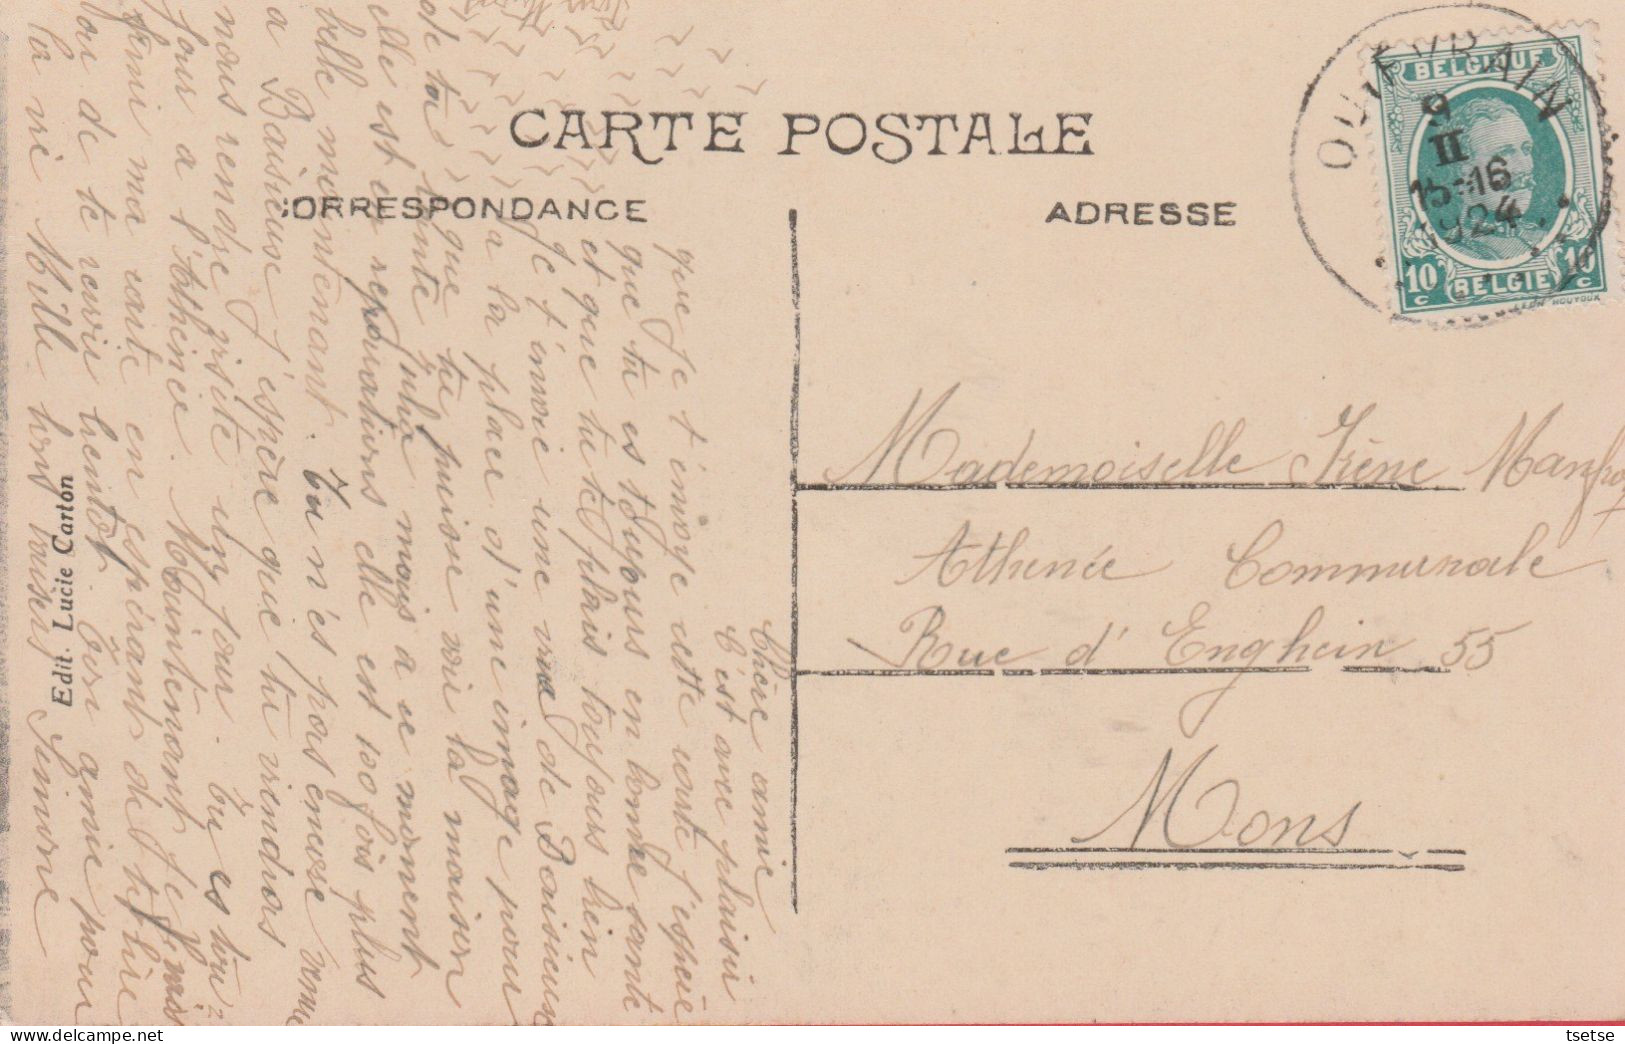 CARTE POSTALE
CORRESPONDANCE
ADRESSE
QUIEVRAIN
9
II
15-16
1924
BELGIQUE
10 c
BELGIE
10 c
LEON HOUYOUX
Mademoiselle Irène
Athénée Communale
Rue d'Enghein 55
Mons
Chère amie
C'est avec plaisir
que je t'envoye cette carte j'espère
que tu es toujours en bonne santé
et que tu te plais toujours bien
Je t'envoie une vue de Baisieux
a la place d'une image pour
que tu puisse voir la maison
de ta tante Julia mais a ce moment
elle est en reparations elle est 100 fois plus
belle maintenant. Tu n'es pas encore venue
a Baisieux j'espère que tu viendras
nous rendre visite un jour. Tu es tou-
jour a l'Athénée. Maintenant je finis
ma carte en espérant de te lire
ou de te revoir bientot. Ton amie pour
la vie Mille bons baisers Simone
Edit. Lucie Carton
tsetse